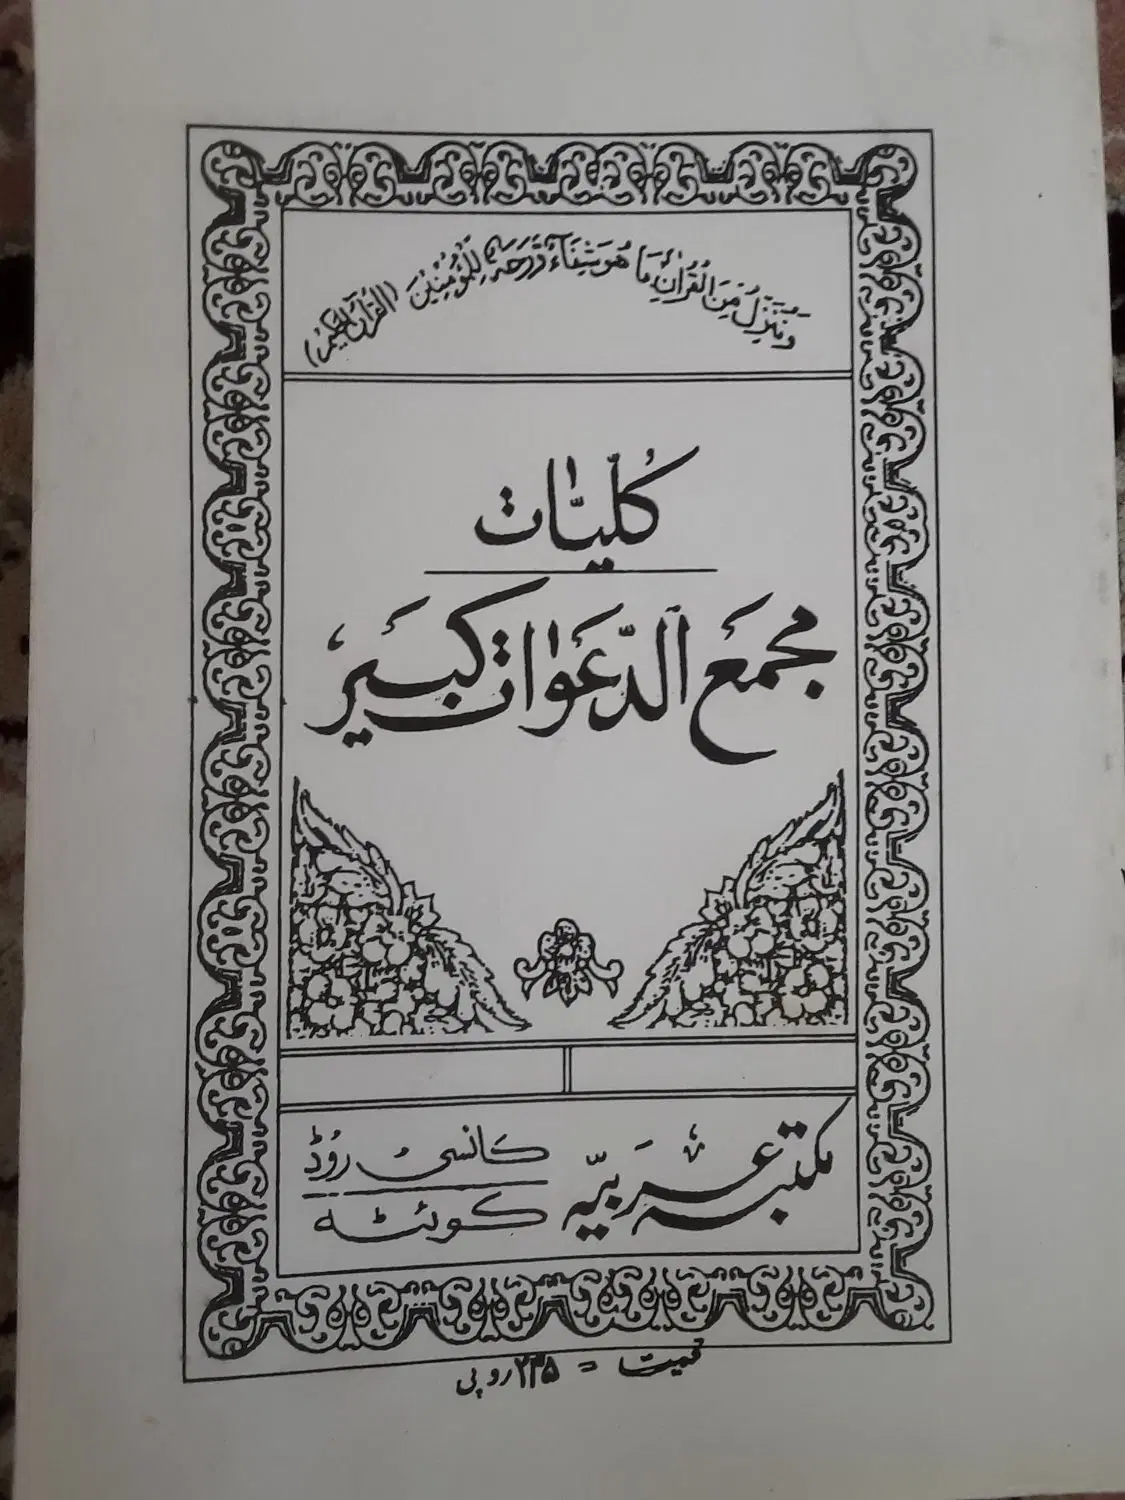 وَنُنَزِّلُ مِنَ الْقُرْاٰنِ مَا هُوَ شِفَآءٌ وَّرَحْمَةٌ لِّلْمُؤْمِنِيْنَ (القرآن الحکیم)
کُلّیّات
مجمَع الدّعَوات کبَیر
مکتبہ عربیّہ
کانسی روڈ
کوئٹہ
قیمت = ۲۳۵ روپی